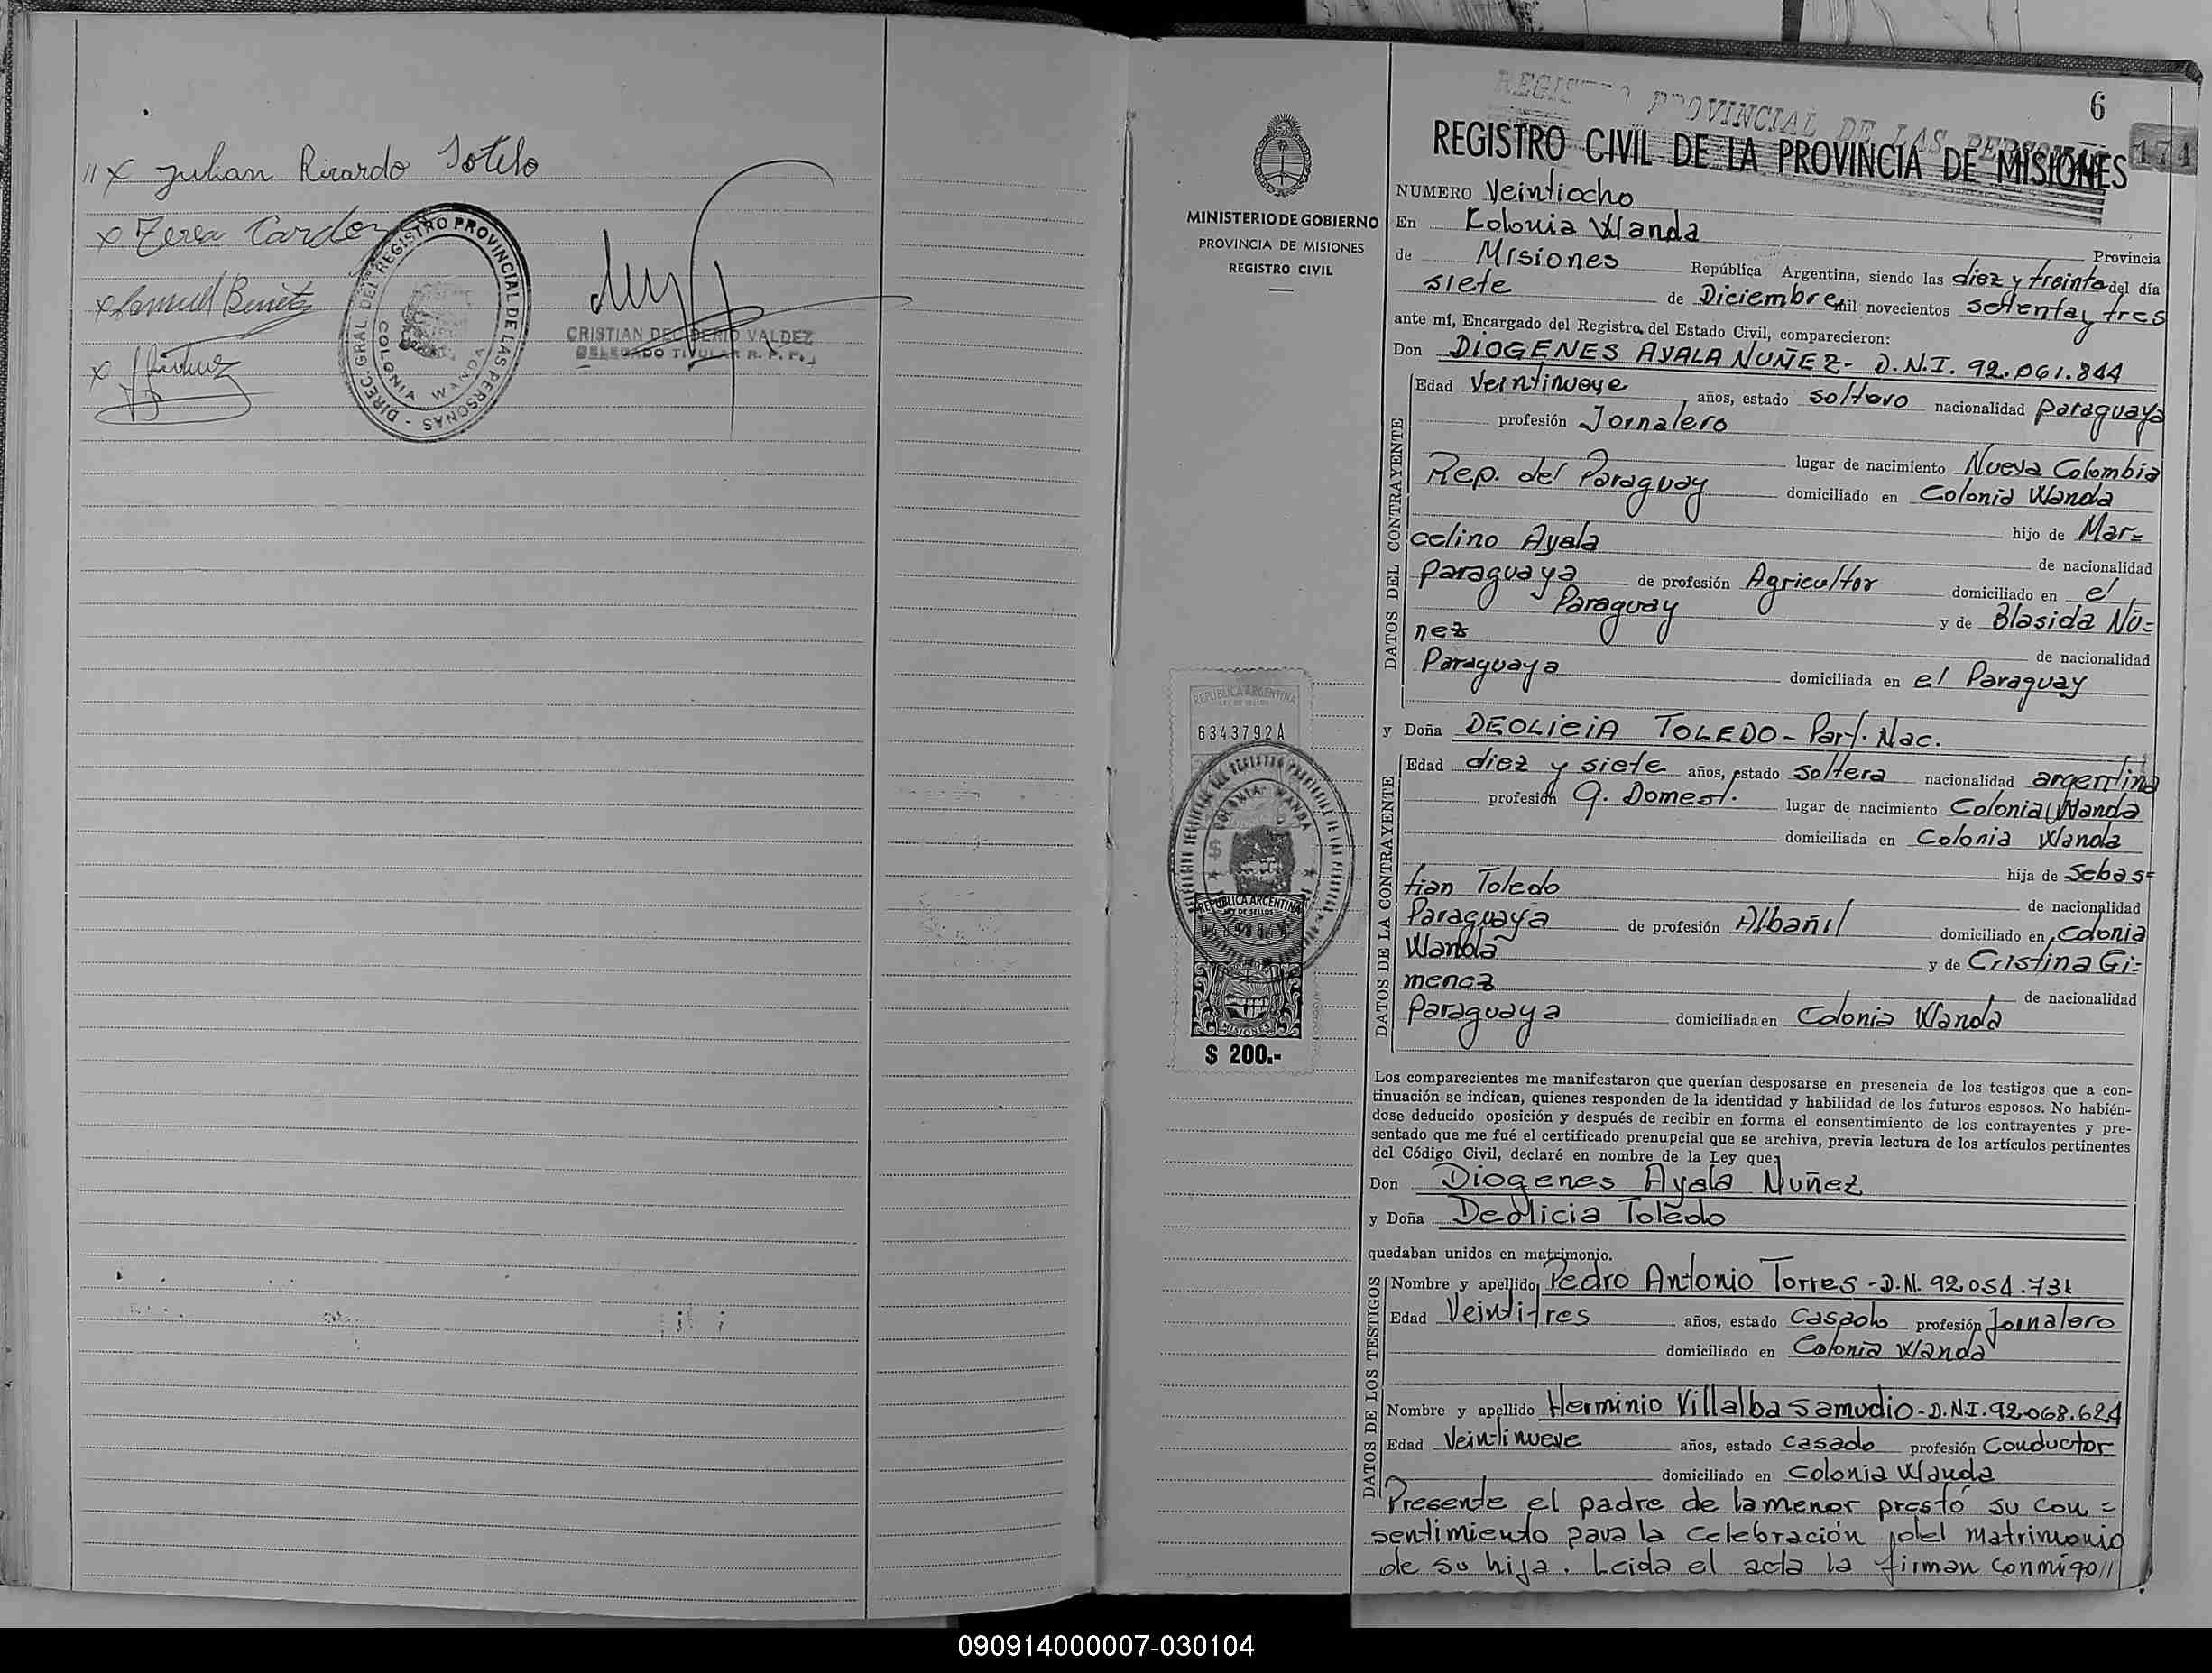 // x Julian Ricardo Sotelo
x Teresa Cardozo
x Samuel Benitez
x
DIREC. GRAL. DEL REGISTRO PROVINCIAL DE LAS PERSONAS -
COLONIA WANDA
CRISTIAN DECIDERIO VALDEZ
DELEGADO TITULAR R. P. P.
REGISTRO PROVINCIAL DE LAS PERSONAS
6
174
REGISTRO CIVIL DE LA PROVINCIA DE MISIONES
MINISTERIO DE GOBIERNO
PROVINCIA DE MISIONES
REGISTRO CIVIL
NUMERO Veintiocho
En Kolonia Wanda Provincia
de Misiones República Argentina, siendo las diez y treinta del día
siete de Diciembre mil novecientos setenta y tres
ante mí, Encargado del Registro del Estado Civil, comparecieron:
Don DIOGENES AYALA NUÑEZ- D.N.I. 92.061.844
DATOS DEL CONTRAYENTE
Edad Veintinueve años, estado soltero nacionalidad paraguaya
profesión Jornalero
lugar de nacimiento Nueva Colombia
Rep. del Paraguay domiciliado en Colonia Wanda
hijo de Mar=
celino Ayala de nacionalidad
paraguaya de profesión Agricultor domiciliado en el
Paraguay y de Blasida Nu=
nez de nacionalidad
Paraguaya domiciliada en el Paraguay
REPUBLICA ARGENTINA
LEY DE SELLOS
6343792A
COLONIA WANDA
REPUBLICA ARGENTINA
LEY DE SELLOS
MISIONES
$ 200.-
y Doña DEOLICIA TOLEDO - Part. Nac.
DATOS DE LA CONTRAYENTE
Edad diez y siete años, estado soltera nacionalidad argentina
profesión Q. Domest. lugar de nacimiento Colonia Wanda
domiciliada en Colonia Wanda
hija de Sebas=
tian Toledo de nacionalidad
Paraguaya de profesión Albañil domiciliado en Colonia
Wanda y de Cristina Gi=
menez de nacionalidad
Paraguaya domiciliada en Colonia Wanda
Los comparecientes me manifestaron que querían desposarse en presencia de los testigos que a con-
tinuación se indican, quienes responden de la identidad y habilidad de los futuros esposos. No habién-
dose deducido oposición y después de recibir en forma el consentimiento de los contrayentes y pre-
sentado que me fué el certificado prenupcial que se archiva, previa lectura de los artículos pertinentes
del Código Civil, declaré en nombre de la Ley que:
Don Diogenes Ayala Nuñez
y Doña Deolicia Toledo
quedaban unidos en matrimonio.
DATOS DE LOS TESTIGOS
Nombre y apellido Pedro Antonio Torres - D.N. 92.054.731
Edad Veintitres años, estado Casado profesión Jornalero
domiciliado en Colonia Wanda
Nombre y apellido Herminio Villalba Samudio - D.N.I. 92.068.624
Edad Veintinueve años, estado casado profesión Conductor
domiciliado en Colonia Wanda
Presente el padre de la menor prestó su con=
sentimiento para la celebración del matrimonio
de su hija. Leida el acta la firman conmigo//
090914000007-030104